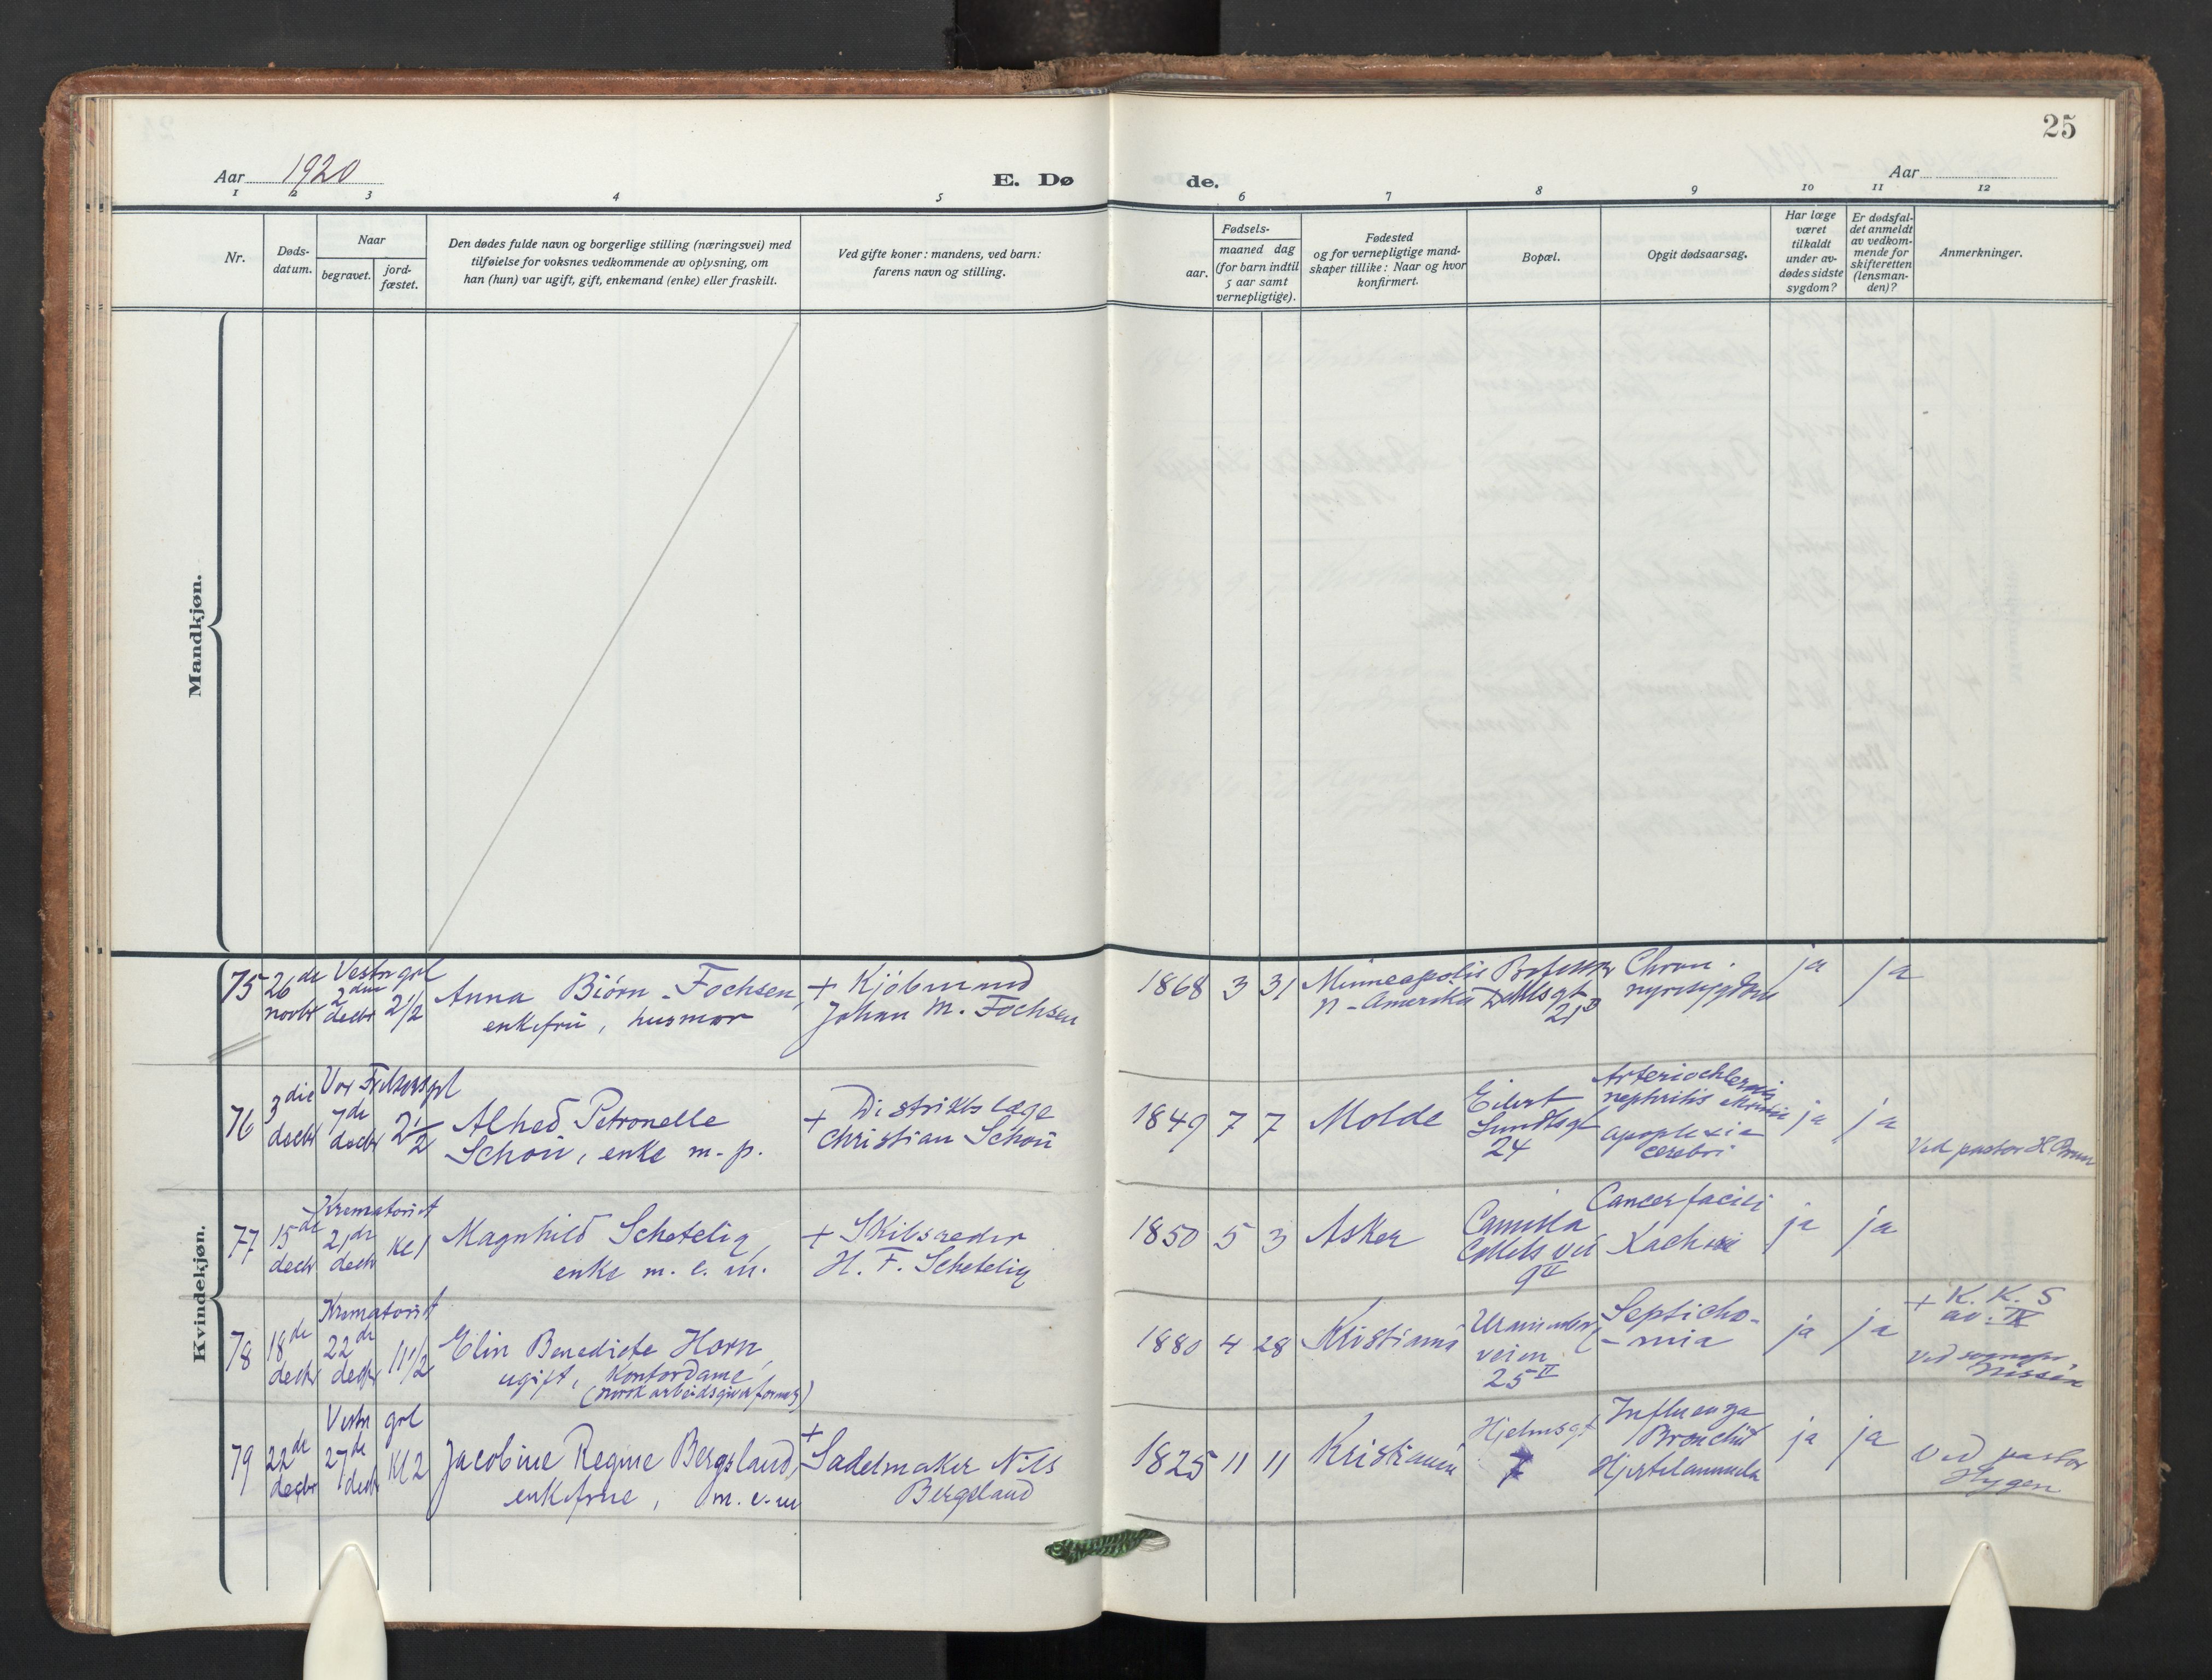 25
Aar 1920
E. Dø
de.
Aar
1 2 3 4 5 6 7 8 9 10 11 12
Nr.
Døds-
datum.
Naar
begravet.
jord-
fæstet.
Den dødes fulde navn og borgerlige stilling (næringsvei) med
tilføielse for voksnes vedkommende av oplysning, om
han (hun) var ugift, gift, enkemand (enke) eller fraskilt.
Ved gifte koner: mandens, ved barn:
farens navn og stilling.
Fødsels-
aar.
maaned dag
(for barn indtil
5 aar samt
vernepligtige).
Fødested
og for vernepligtige mand-
skaper tillike: Naar og hvor
konfirmert.
Bopæl.
Opgit dødsaarsag.
Har læge
været
tilkaldt
under av-
dødes sidste
sygdom?
Er dødsfal-
det anmeldt
av vedkom-
mende for
skifteretten
(lensman-
den)?
Anmerkninger.
Mandkjøn.
Kvindekjøn.
75
26de
novbr
Vestre grl
2den
decbr
2 1/2
Anna Biörn-Fochsen,
enkefru, husmor
+ Kjöbmand
Johan M. Fochsen
1868 3 31
Minneapolis
N-Amerika
Professor
Dahlsgt
21
Chron.
nyresygdom
ja
ja
76
3die
decbr
Vor Frelsersgrl
7de
decbr
2 1/2
Alhed Petronelle
Schou, enke m. p.
+ Distriktslæge
Christian Schou
1849 7 7
Molde
Eilert
Sundtsgt
24
nephritis
apoplexia
cerebri
ja
ja
Ved pastor H.
77
15de
decbr
Krematoriet
21de
decbr
Kl 1
Magnhild Schetelig,
enke m. e. m.
+ Skibsreder
H. F. Schetelig
1850 5 3
Asker
Camilla
Colletts vei
9 II
Cancer faciei
ja
ja
78
18de
decbr
Krematoriet
22de
decbr
11 1/2
Elin Benedicte Horn,
ugift, Kontordame
(norsk arbeidsgiverforening)
1880 4 28
Kristiania
Uranienborg
veien
25 II
Septichæ-
-mia
ja
ja
+ K. K. S
av. IX
Ved sognepr.
Nissen
79
22de
decbr
Vestre grl
27de
decbr
Kl 2
Jacobine Regine Bergsland,
enkefrue, m. e. m
+
Sadelmaker Nils
Bergsland
1825 11 11
Kristiania
Hjelmsgt
7
Influenza
Bronchit
Hjertelammelse
ja
ja
Ved pastor
Hygen